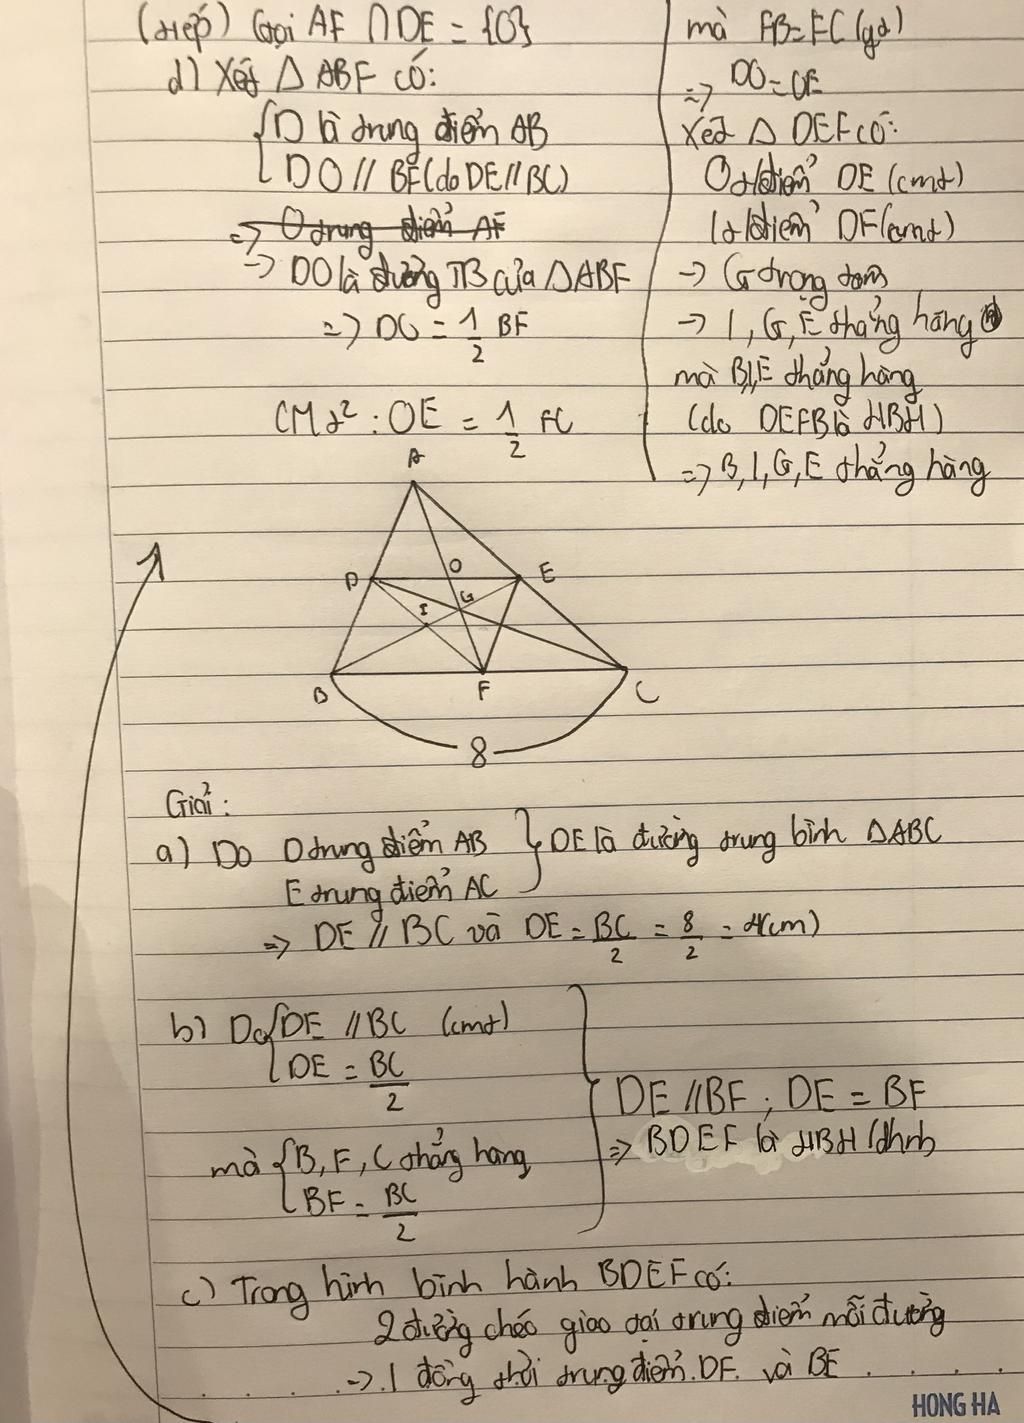 (tiếp) Gọi AF ∩ DE = {O}
d) Xét Δ ABF có:
{ D là trung điểm AB
DO // BF (do DE // BC)
=> O trung điểm AF
-> DO là đường TB của ΔABF
=> DO = 1/2 BF
CMt²: OE = 1/2 FC
mà FB = FC (gt)
=> DO = OE
Xét Δ DEF có:
O t/điểm DE (cmt)
I t/điểm DF (cmt)
-> G trọng tâm
-> I, G, E thẳng hàng
mà B,I,E thẳng hàng
(do DEFB là HBH)
=> B, I, G, E thẳng hàng
A
D O E
I G
B F C
8
Giải:
a) Do D trung điểm AB } DE là đường trung bình ΔABC
E trung điểm AC
=> DE // BC và DE = BC/2 = 8/2 = 4(cm)
b) Do { DE // BC (cmt)
DE = BC/2
mà { B, F, C thẳng hang
BF = BC/2
} DE // BF ; DE = BF
=> BDEF là HBH (dhnb)
c) Trong hình bình hành BDEF có:
2 đường chéo giao tại trung điểm mỗi đường
-> I đồng thời trung điểm DF và BE
HONG HA